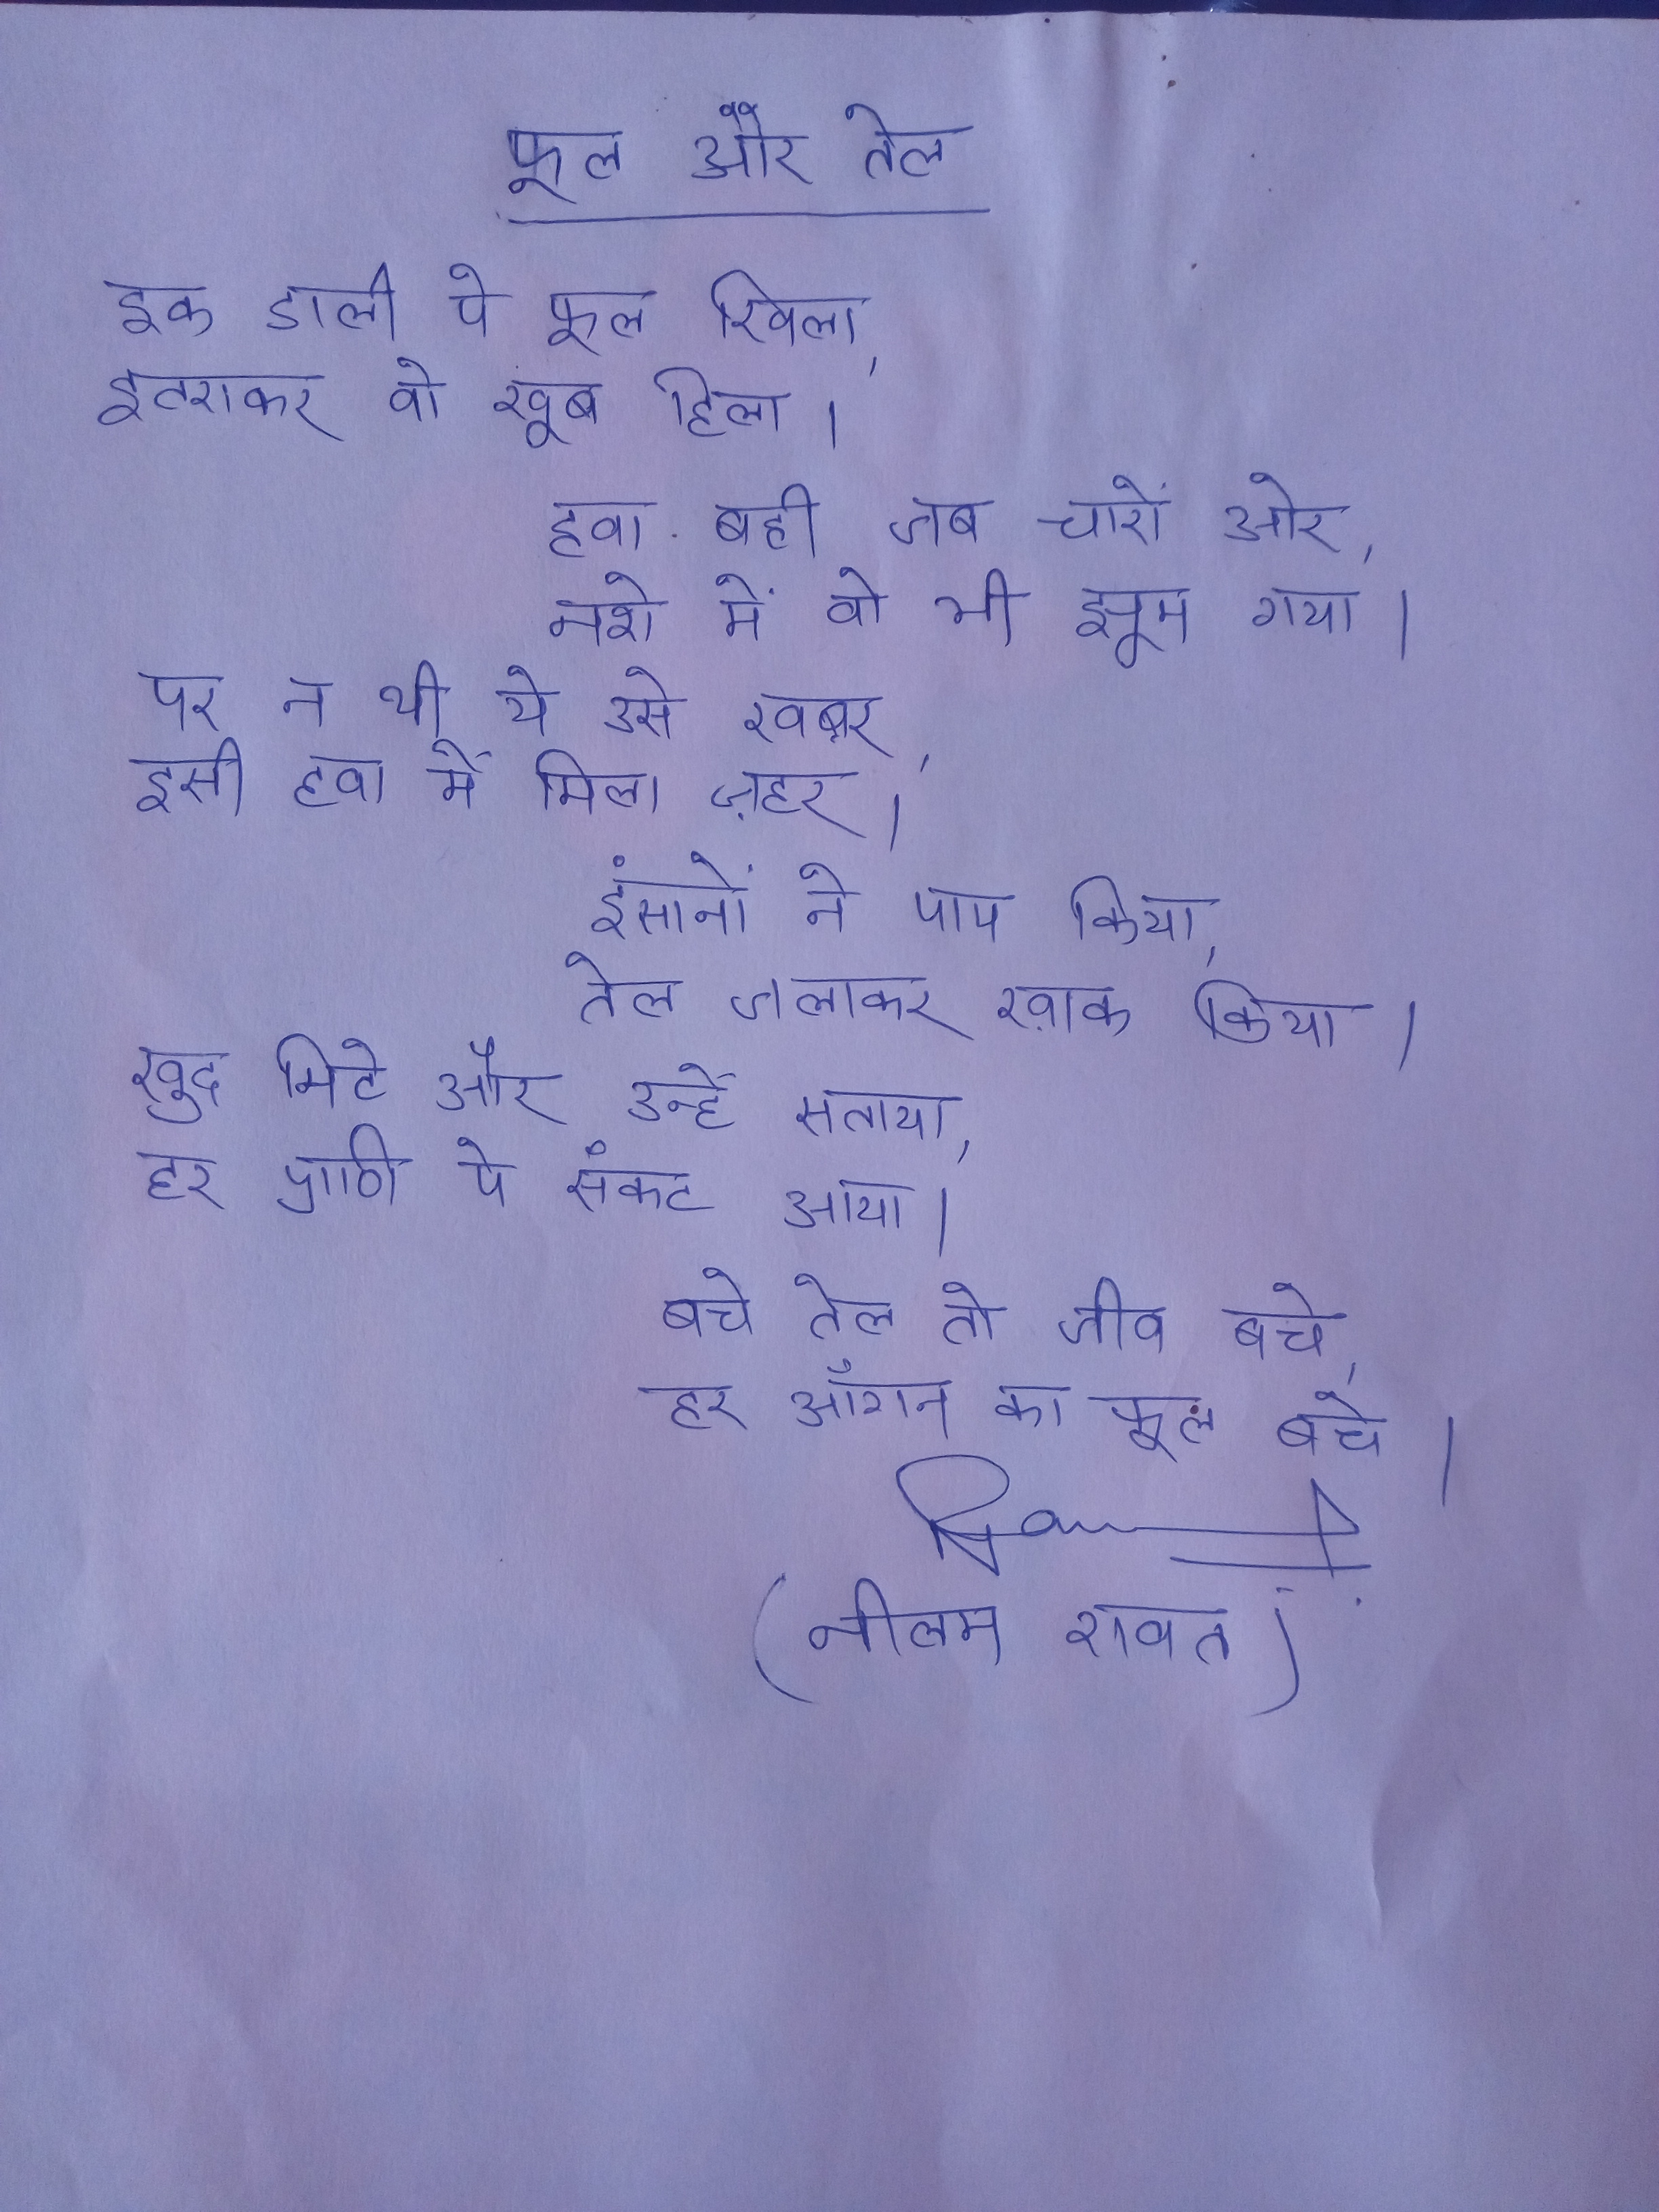 फूल और तेल
इक डाली पे फूल खिला,
इतराकर वो खूब हिला।
हवा बही जब चारों ओर,
नशे में वो भी झूम गया।
पर न थी ये उसे खबर,
इसी हवा में मिला ज़हर।
इंसानों ने पाप किया,
तेल जलाकर ख़ाक किया।
खुद मिटे और उन्हें सताया,
हर प्राणी पे संकट आया।
बचे तेल तो जीव बचे,
हर आँगन का फूल बचे।
(नीलम रावत)